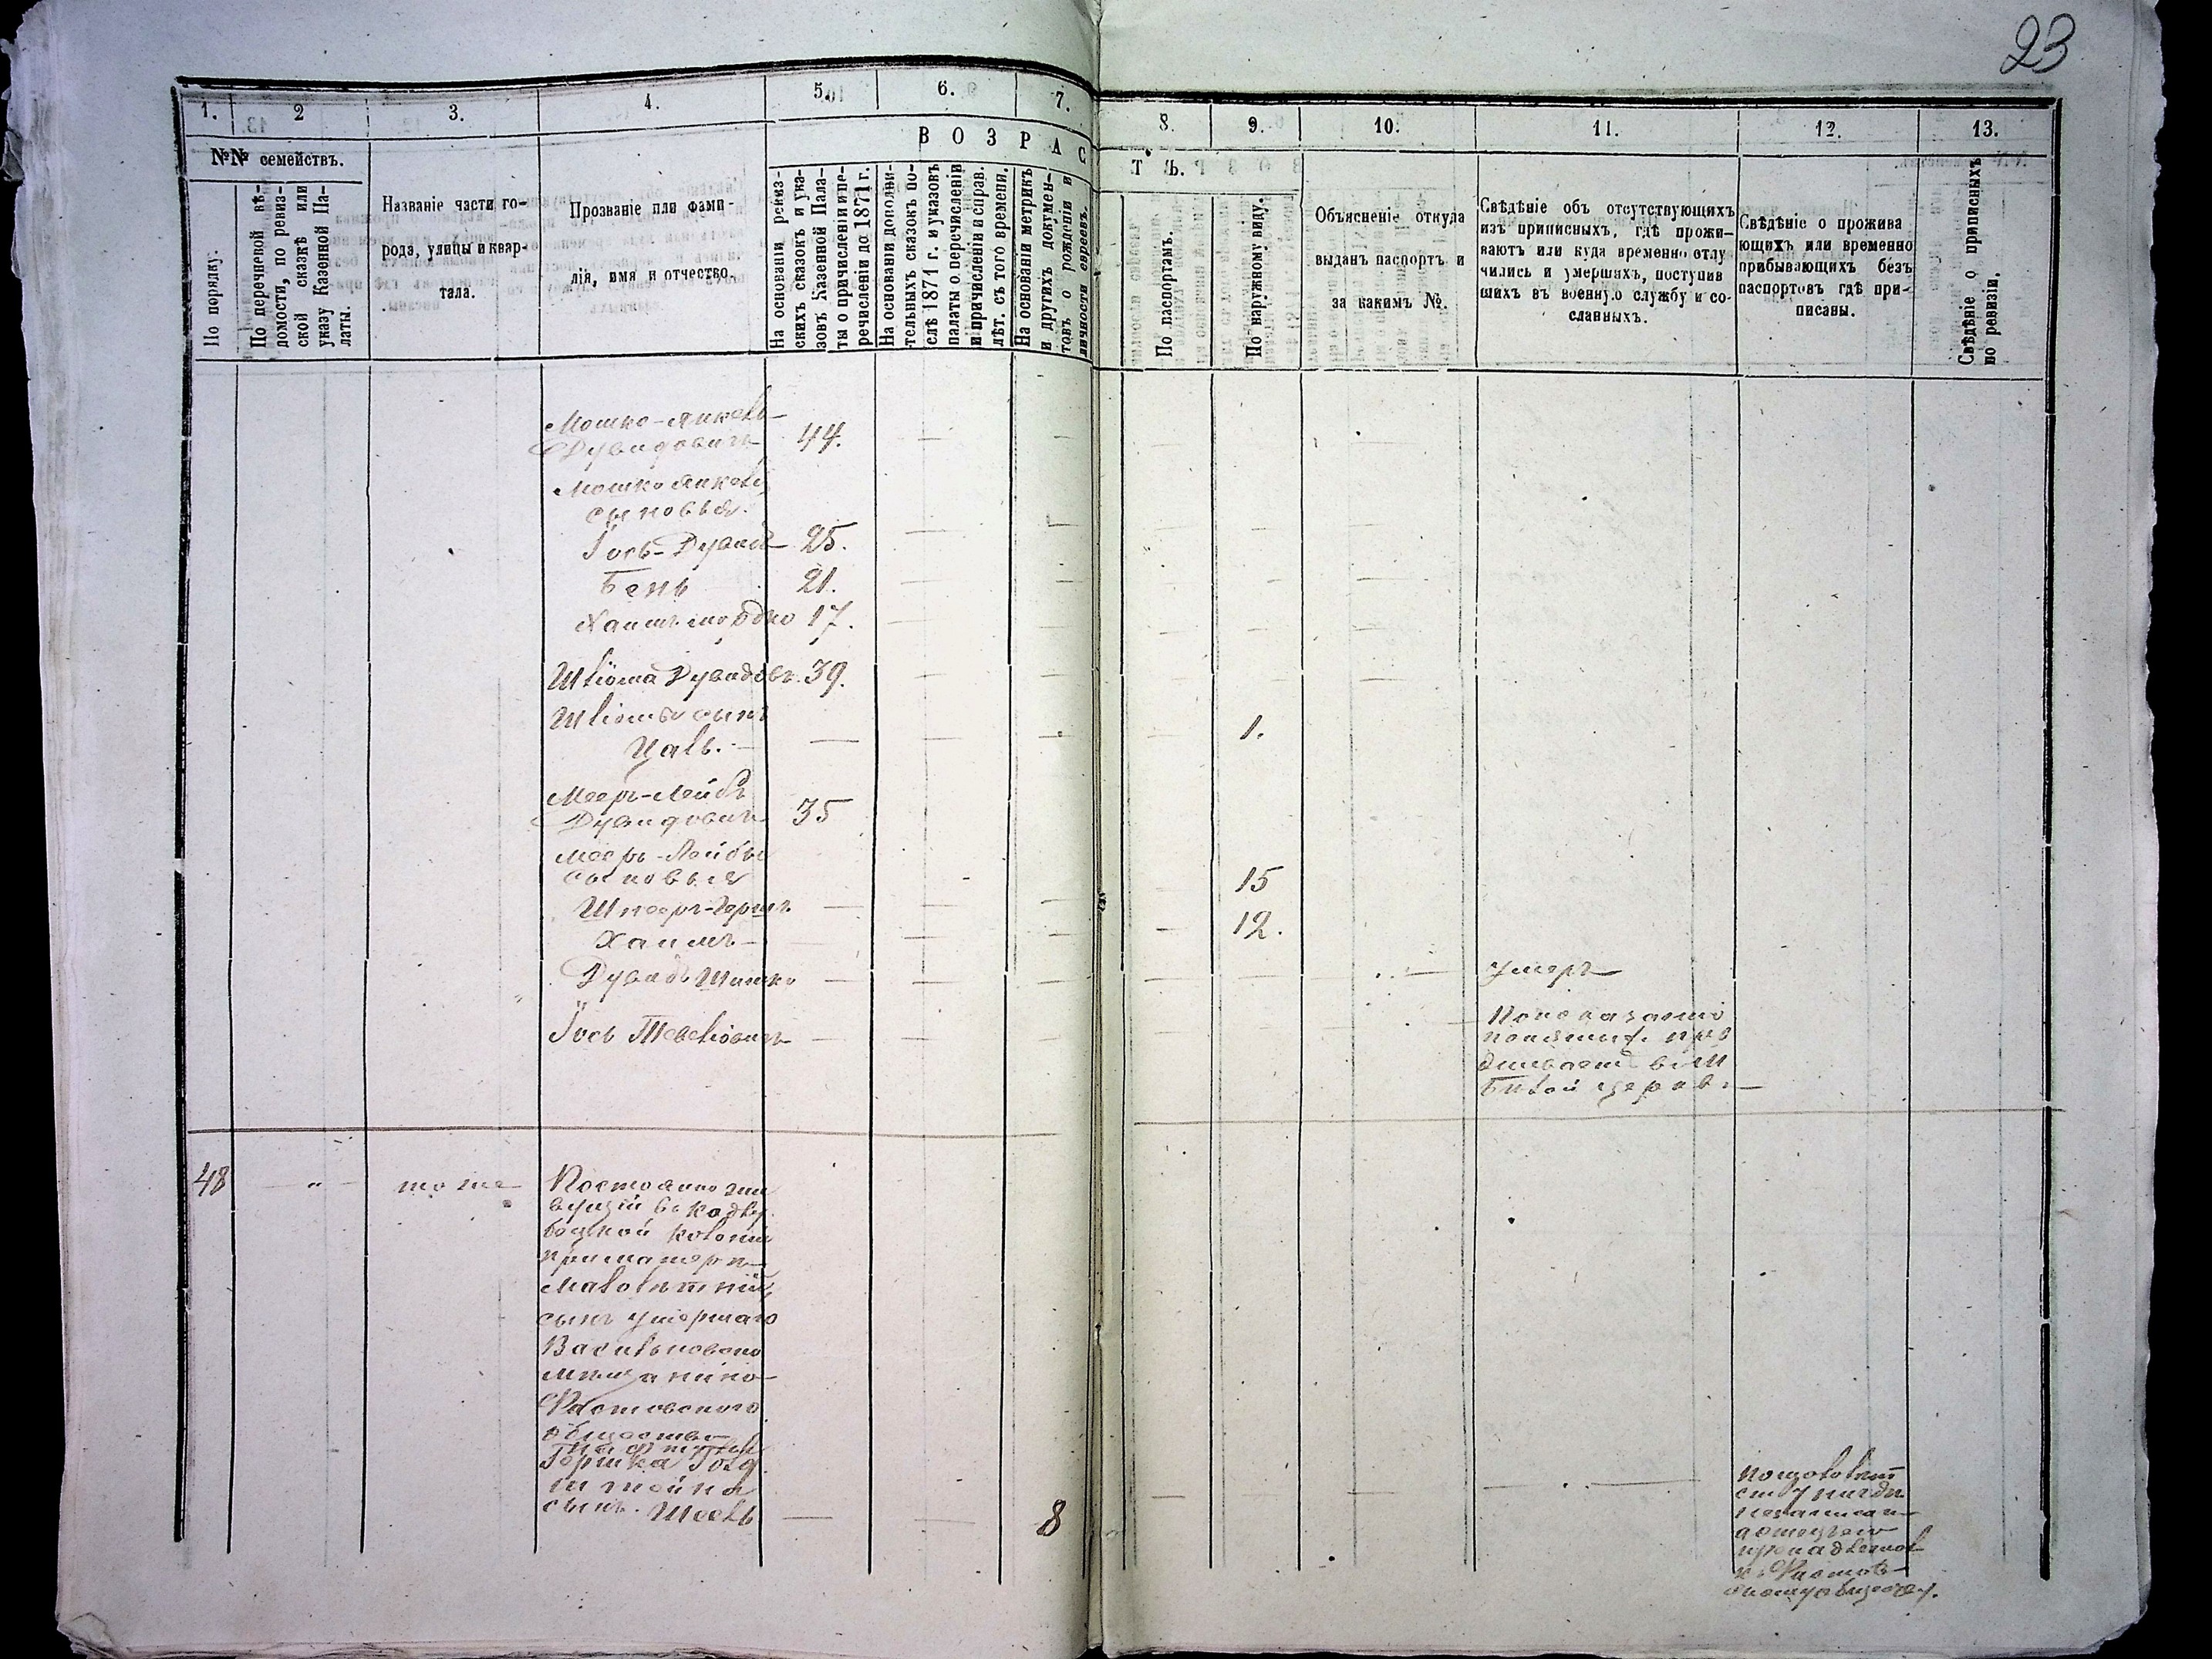 23
1. 2 3. 4. 5. 6. 7. 8. 9. 10. 11. 12. 13.
№№ семействъ.
По порядку.
По перечневой вѣ-
домости, по ревиз-
ской сказкѣ или
указу Казенной Па-
латы.
Названіе части го-
рода, улицы и квар-
тала.
Прозваніе или фами-
лія, имя и отчество.
ВОЗРАСТЪ.
На основаніи ревиз-
скихъ сказокъ и ука-
зовъ Казенной Пала-
ты о причисленіи и пе-
речисленіи до 1871 г.
На основаніи дополни-
тельныхъ сказокъ по-
слѣ 1871 г. и указовъ
палаты о перечисленіи
и причисленіи и справ.
лѣт. съ того времени.
На основаніи метрикъ
и другихъ докумен-
товъ о рожденіи и
личности евреевъ.
По паспортамъ.
По наружному виду.
Объясненіе откуда
выданъ паспортъ и
за какимъ №.
Свѣдѣніе объ отсутствующихъ
изъ приписныхъ, гдѣ прожи-
ваютъ или куда временно отлу
чились и умершихъ, поступив
шихъ въ военную службу и со-
сланныхъ.
Свѣдѣніе о прожива
ющихъ или временно
прибывающихъ безъ
паспортовъ гдѣ при-
писаны.
Свѣдѣніе о приписныхъ
по ревизіи.
Мошко-Янкель
Дувидовичъ 44.
Мошко Янкеля
сыновья.
Іось-Дувидъ 25.
Бень 21.
Хаимъ 17.
Шліома Дувидовъ. 39.
Шліомы сынъ
Цаль. — 1.
Мееръ-Лейбъ
Дувидовичъ 35
Мееръ-Лейбы
сыновья
Шнееръ-Гершъ 15
Хаимъ 12.
Дувидъ Шимко умеръ
Іось Тевеліовичъ
Бѣлой церкв.
48 " тоже Постоянно жи
вущій въ Кодлу
бацкой колоніи
при матери
малолѣтній
сынъ умершаго
Васильковского
мѣщанина
Фастовского
общества
Гершка Голд
штейна
сынъ. Шоель 8
нигдѣ
къ Фастов
скому обществу.